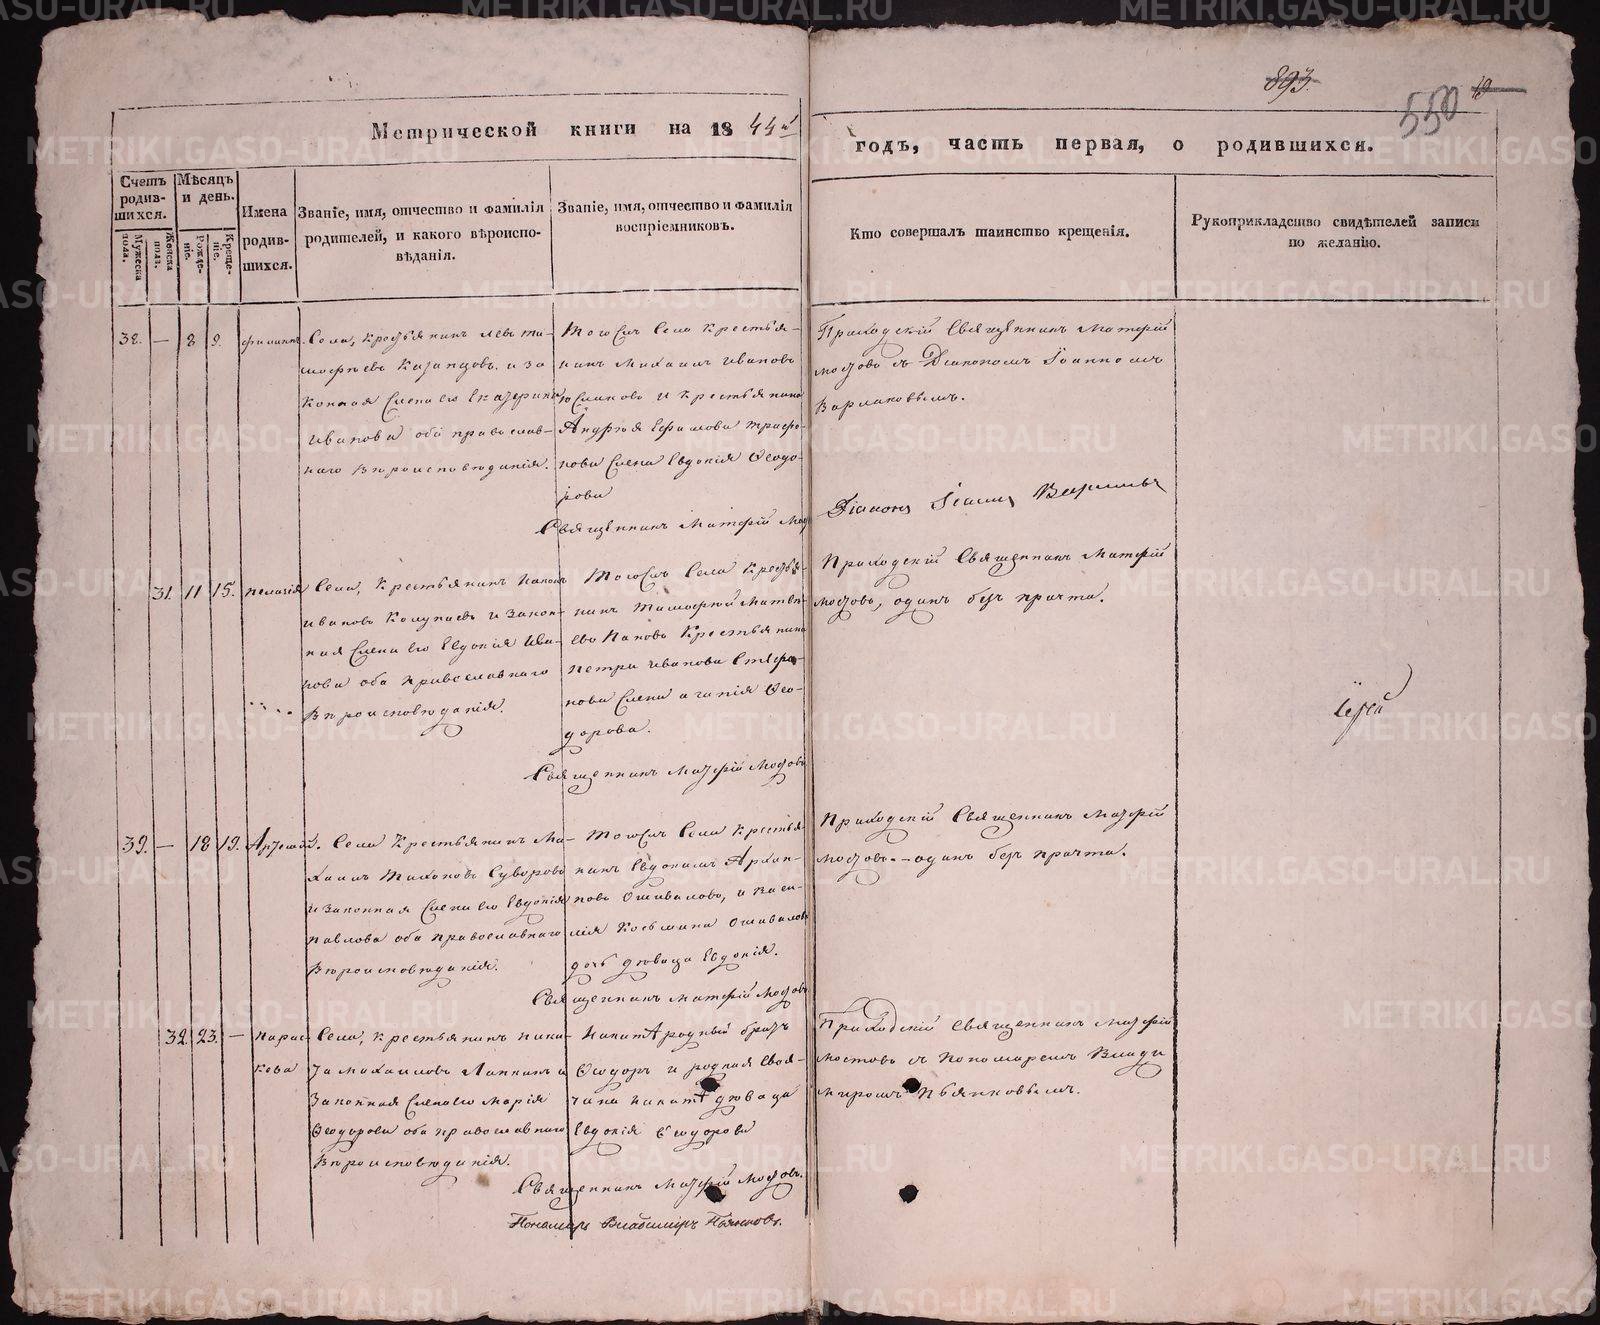 893.
550
Метрической книги на 1844й
годъ, часть первая, о родившихся.
Счетъ родив-шихся.
Мужеска пола.
Женска пола.
Мѣсяцъ и день.
Рожде-ніе.
Креще-ніе.
Имена родив-шихся.
Званіе, имя, отчество и фамилія
родителей, и какого вѣроиспо-
вѣданія.
Званіе, имя, отчество и фамилія
воспріемниковъ.
Кто совершалъ таинство крещенія.
Рукоприкладство свидѣтелей записи
по желанію.
38. — 8 9. Филиппъ.
Села, крестьянинъ Левъ Ти-
мофѣевъ Казанцовъ и за
конная жена его Екатерина
Иванова оба православ-
наго вѣроисповѣданія.
Тогожъ села крестья-
нинъ Михаилъ Ивановъ
и крестьянина
Андрея Ефимова Трифо-
нова жена Евдокія Ѳеодо-
рова
Священникъ Матфій Мо
Приходскій Священникъ Матфій
Мостовъ съ Діакономъ Іоанномъ
Варлаковымъ.
Діаконъ Іоаннъ
31. 11 15. Пелагія
Села, крестьянинъ
Ивановъ Колупаевъ и закон-
ная жена его Евдокія Ива-
нова оба православнаго
вѣроисповѣданія.
Тогожъ села крестья-
нинъ Тимофей Матвѣ-
евъ Пановъ крестьянина
Петра Иванова Стефа-
нова жена Агапія Ѳео-
дорова.
Священникъ Матфій Мостовъ
Приходскій Священникъ Матфій
Мостовъ, одинъ безъ причта.
39. — 18 19. Артемій.
Села крестьянинъ Ми-
хаилъ Тихоновъ Суворовъ
и законная жена его Евдокія
Павлова оба православнаго
вѣроисповѣданія.
Тогожъ села крестья-
нинъ Евдокимъ Архип-
повъ Ошиваловъ, и Васи-
лія Косьмина Ошивалова
дочь дѣвица Евдокія.
Священникъ Матфій Мостовъ
Приходскій Священникъ Матфій
Мостовъ. — одинъ безъ причта.
32. 23. — Парас-
кева
Села, крестьянинъ Ники-
та Михаиловъ Лапкинъ и
законная жена его Марія
Ѳеодорова оба православнаго
вѣроисповѣданія.
родный братъ
Ѳеодоръ и родная своя-
чина дѣвица
Евдокія Ѳеодорова
Священникъ Матфій Мостовъ.
Пономарь Владиміръ Пьянковъ.
Приходскій Священникъ Матфій
Мостовъ съ Пономаремъ Влади
миромъ Пьянковымъ.